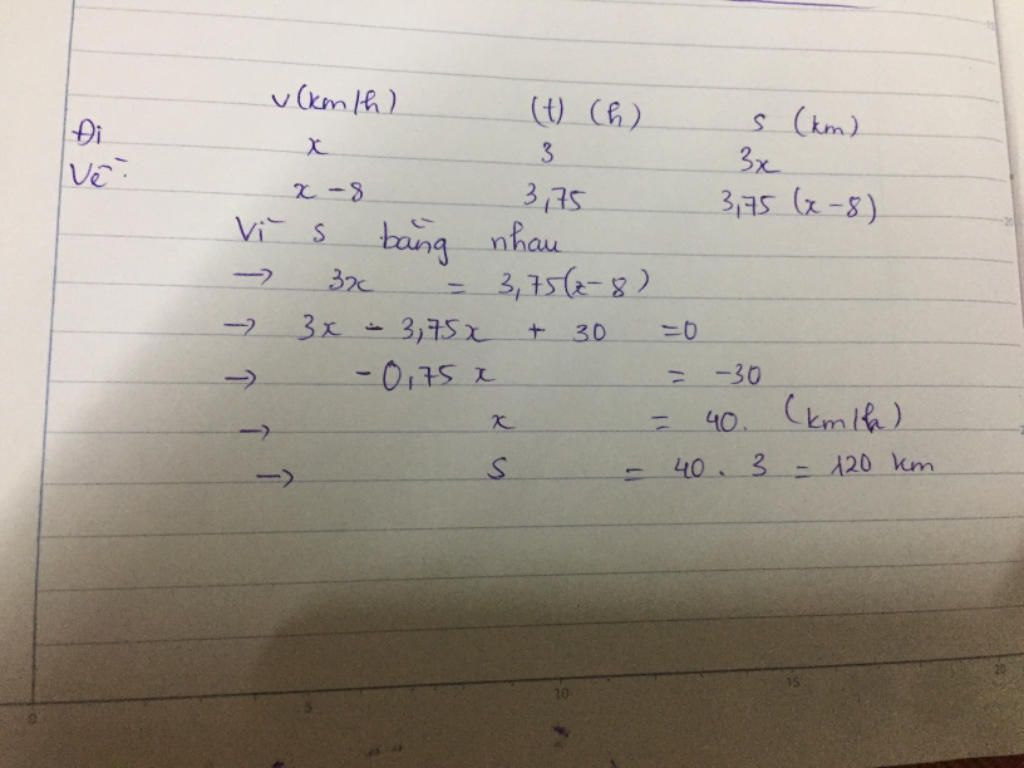 v (km/h) (t) (h) s (km)
Đi x 3 3x
Về: x - 8 3,75 3,75 (x - 8)
Vì s bằng nhau
→ 3x = 3,75(x - 8)
→ 3x - 3,75x + 30 = 0
→ -0,75 x = -30
→ x = 40. (km/h)
→ S = 40 . 3 = 120 km
0 5 10 15 20